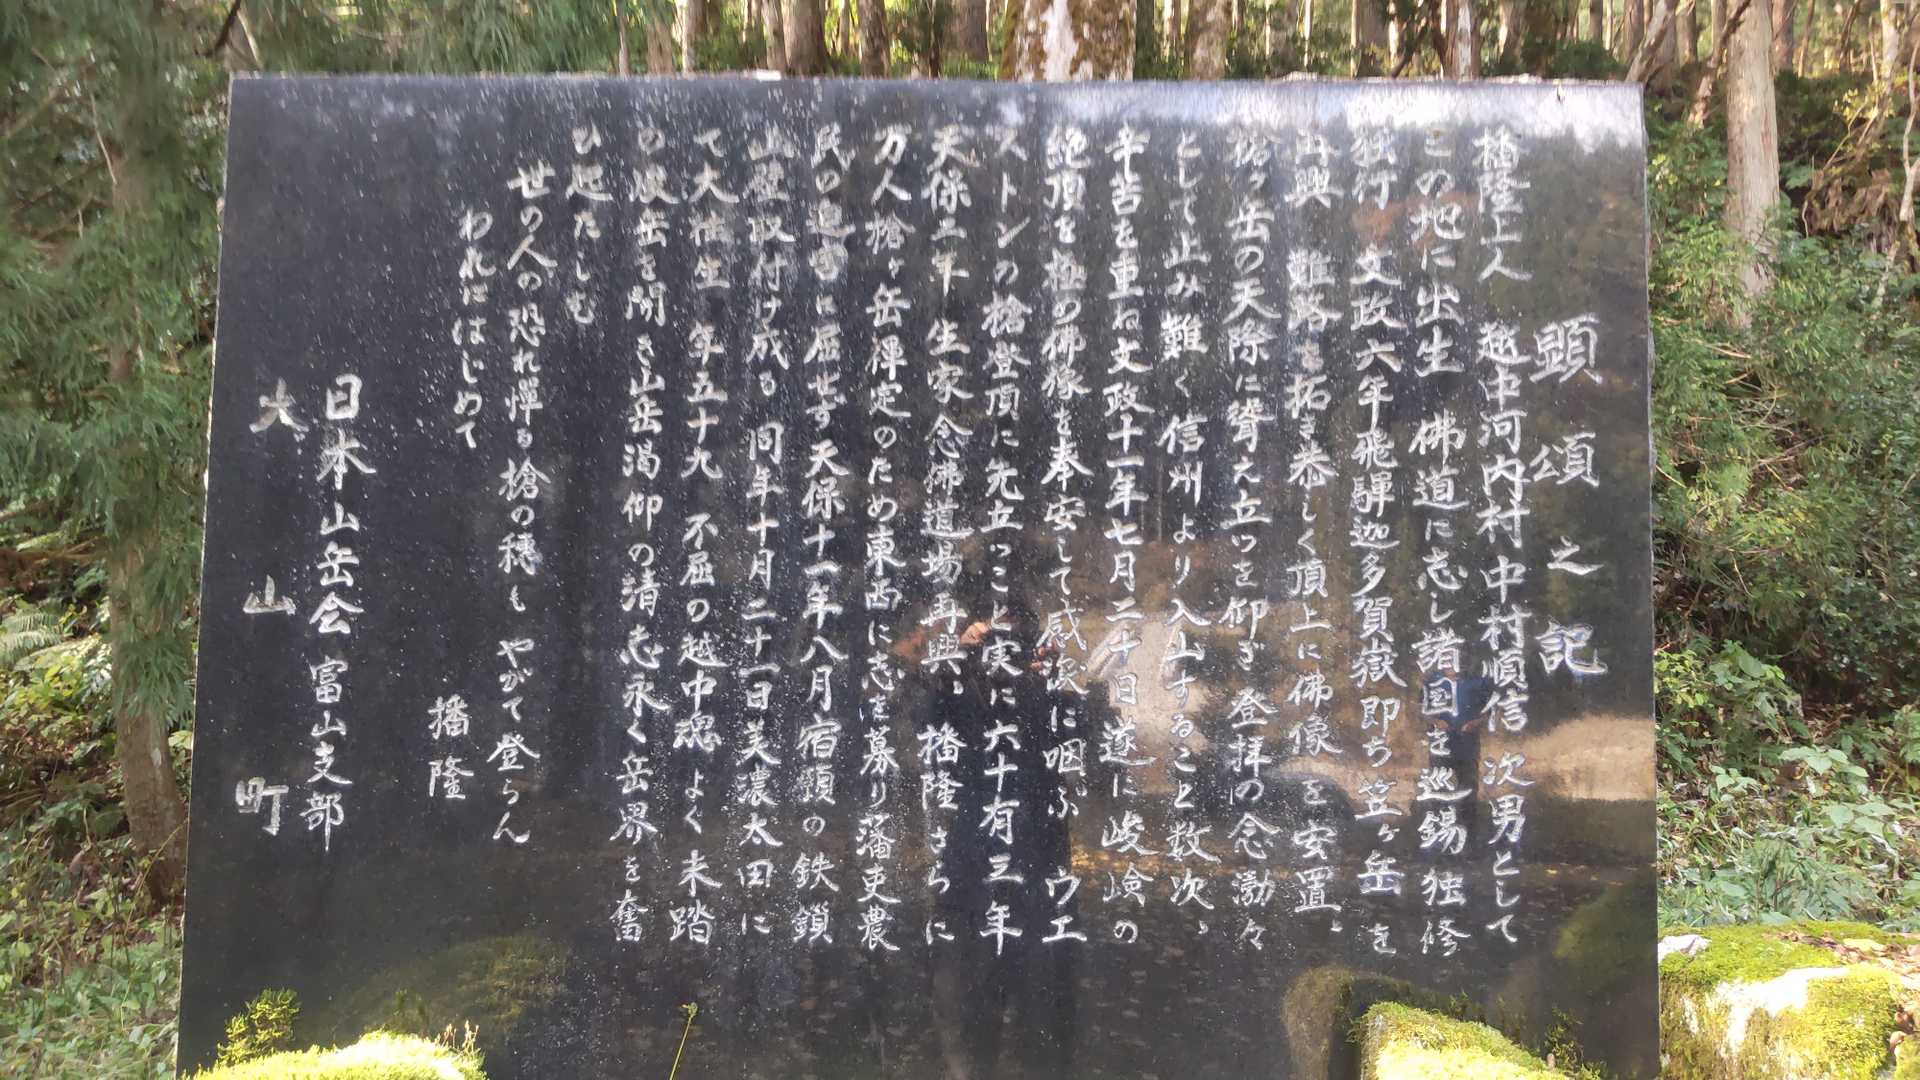 顕頌之記
播隆上人 越中河内村中村順信 次男として
この地に出生 佛道に志し諸国を巡錫独修
独行 文政六年飛騨迦多賀嶽即ち笠ヶ岳を
再興 難路を拓き恭しく頂上に佛像を安置、
槍ヶ岳の天際に聳え立つを仰ぎ登拝の念渤々
として止み難く信州より入山すること数次、
辛苦を重ね文政十一年七月二十日遂に峻嶮の
絶頂を極め佛像を奉安して感涙に咽ぶ ウエ
ストンの槍登頂に先立つこと実に六十有三年
天保三年 生家念佛道場再興、播隆さらに
万人槍ヶ岳禅定のため東西に志を募り藩吏農
民の迫害に屈せず天保十一年八月宿願の鉄鎖
山壁取付け成る 同年十月二十一日美濃太田に
て大往生 年五十九 不屈の越中魂よく未踏
の峻岳を開き山岳渇仰の清志永く岳界を奮
ひ起たしむ
世の人の恐れ憚る槍の穂も やがて登らん
われにはじめて
播隆
日本山岳会富山支部
大山町